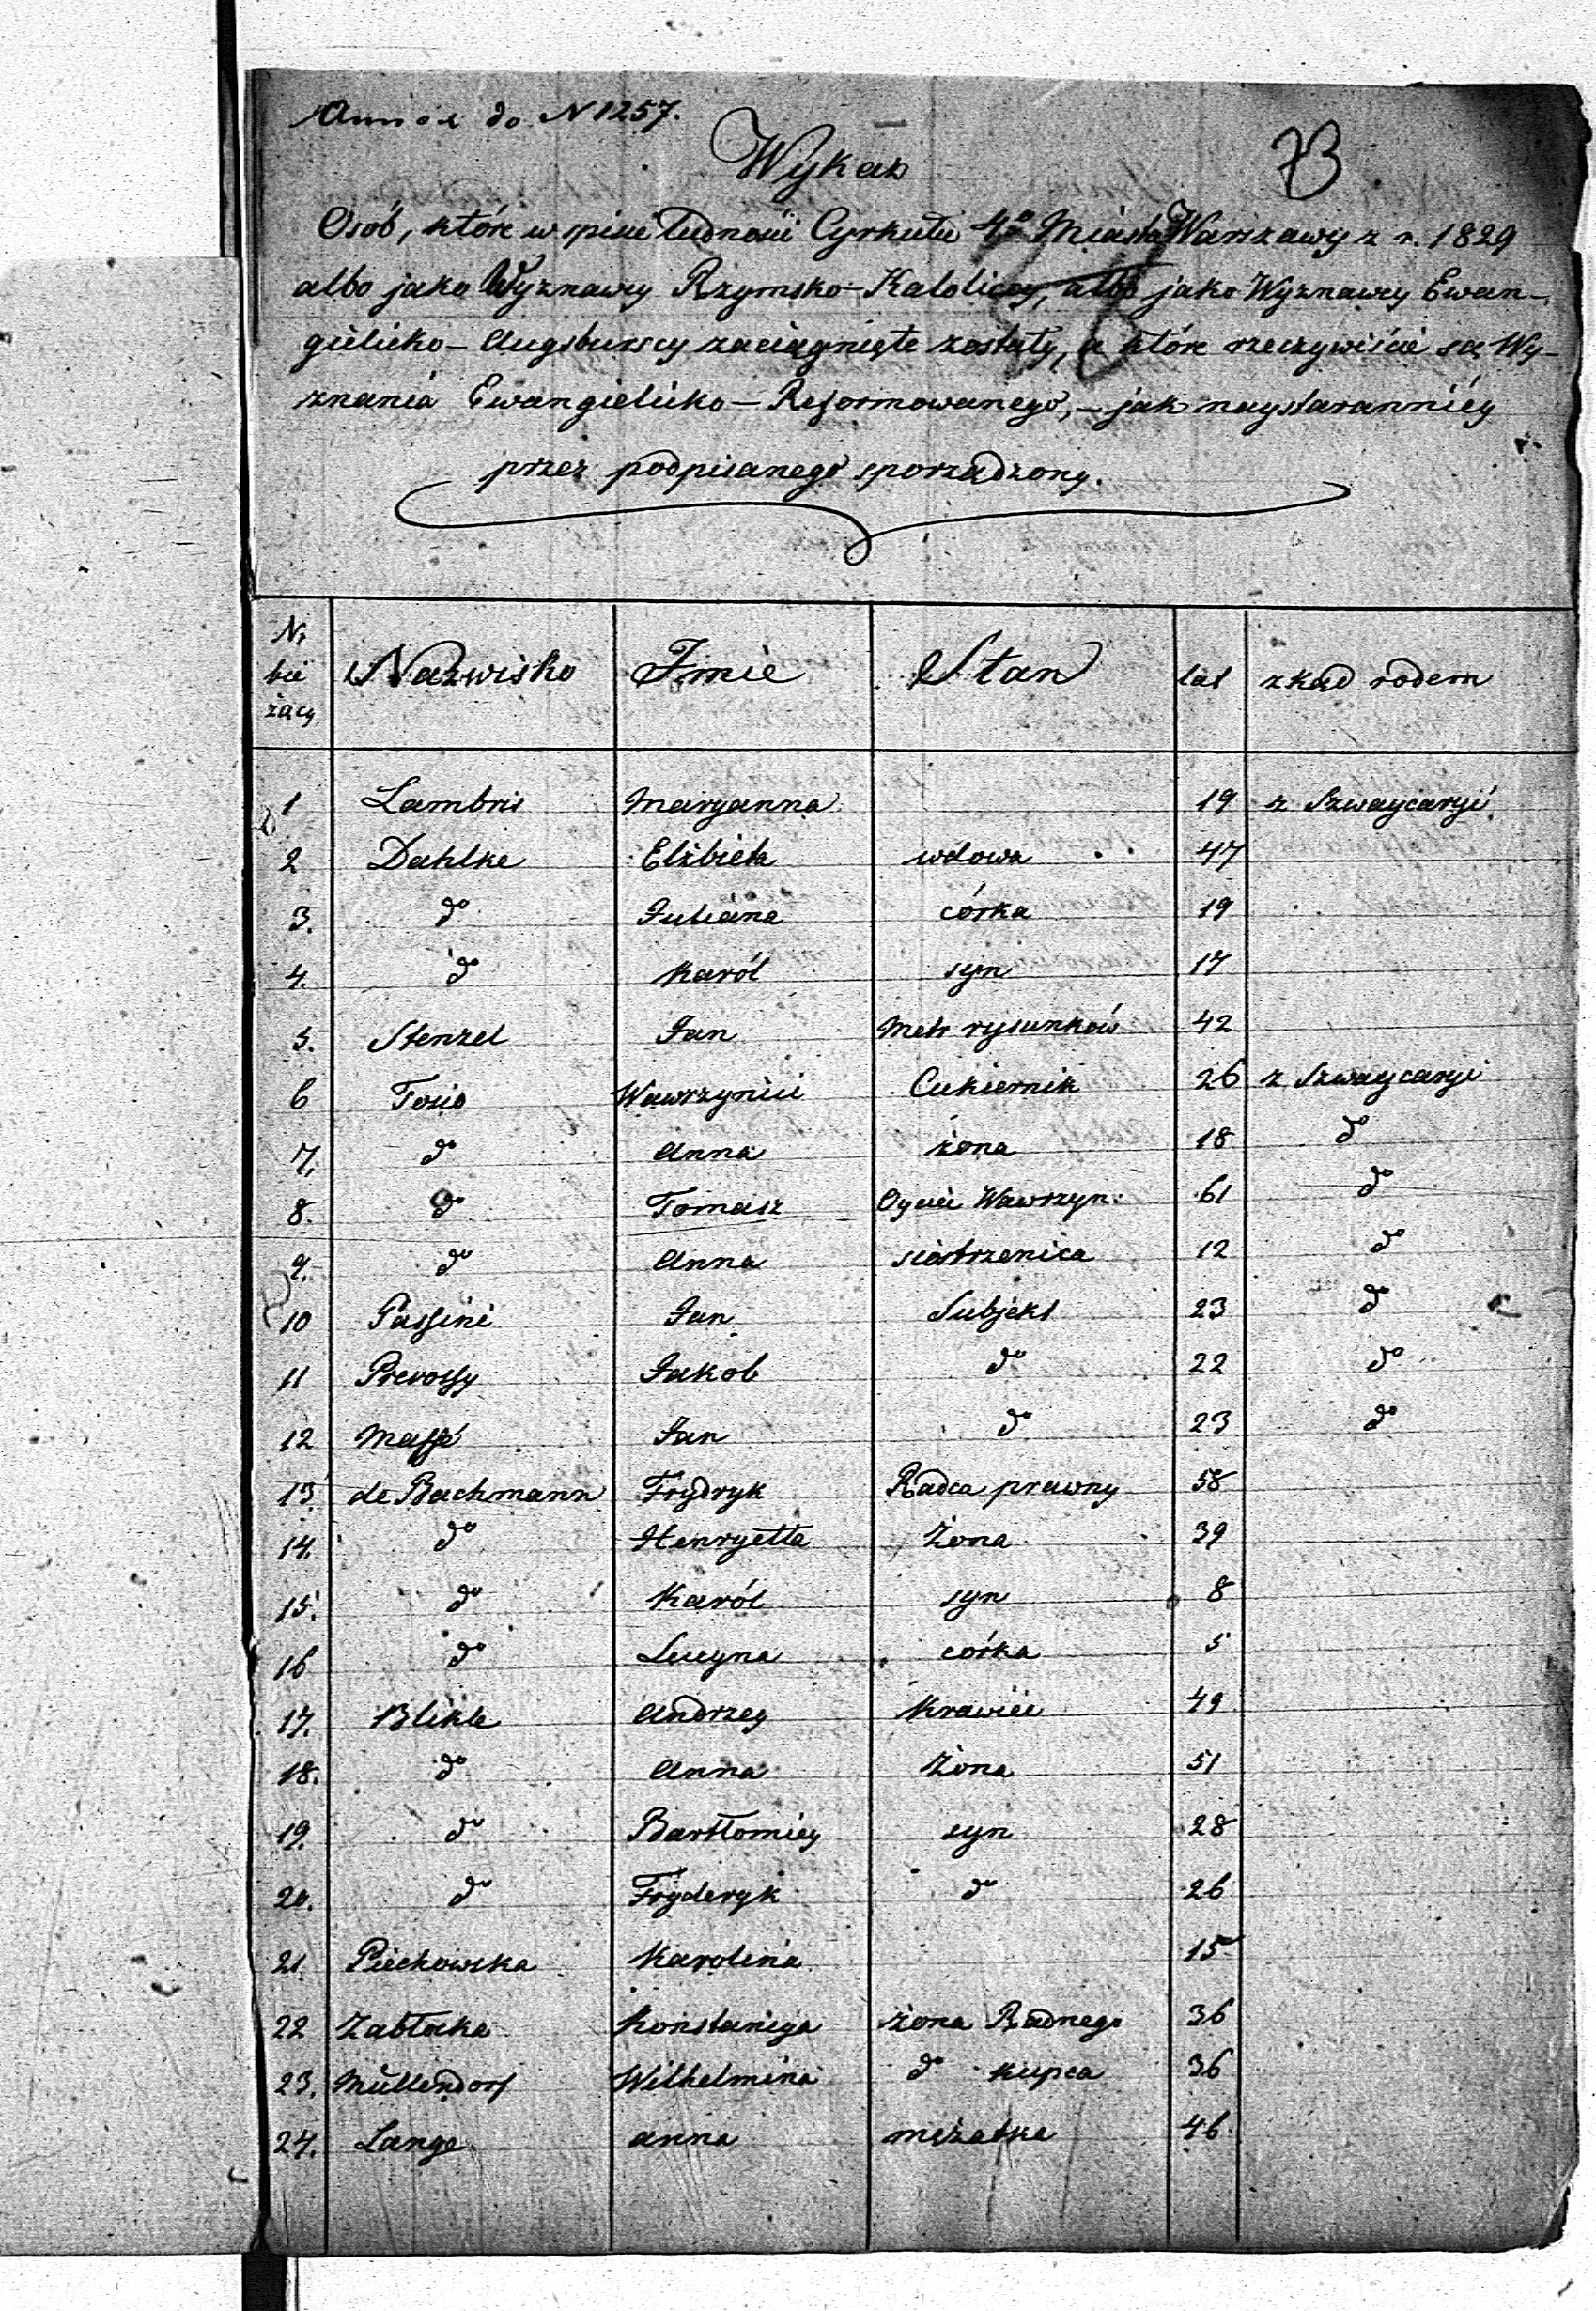 Annex do N 1257.
73
Wykaz
Osób, które w spisie ludności Cyrkułu 4º Miasta Warszawy z r. 1829
albo jako Wyznawcy Rzymsko-Katoliccy, albo jako Wyznawcy Ewan-
gielicko-Augsburscy zaciągnięte zostały, a które rzeczywiście są Wy-
znania Ewangielicko-Reformowanego,- jak naystaranniéy
przez podpisanego sporządzony.
Nr bieżący Nazwisko Imie Stan lat zkąd rodem
1 Lambris Maryanna 19 z Szwaycaryi
2 Dahlke Elżbieta wdowa 47
3. do Juliana córka 19
4. do Karól syn 17
5. Stenzel Jan Metr rysunków 42
6 Tosio Wawrzyniec Cukiernik 26 z Szwaycaryi
7. do Anna żona 18 do
8. do Tomasz Oyciec Wawrzyn: 61 do
9. do Anna siostrzenica 12 do
10 Passini Jan Subjekt 23 do
11 Prevossy Jakob do 22 do
12 Massé Jan do 23 do
13. de Bachmann Frydryk Radca prawny 58
14. do Henryetta Żona 39
15. do Karól syn 8
16 do Lucyna córka 5
17. Blikle Andrzey Krawiec 49
18. do Anna Żona 51
19. do Bartłomiey syn 28
20. do Fryderyk do 26
21 Piechowska Karolina 15
22 Zabłocka Konstancya żona Radnego 36
23. Müllendorf Wilhelmina do kupca 36
24. Lange anna mężatka 46